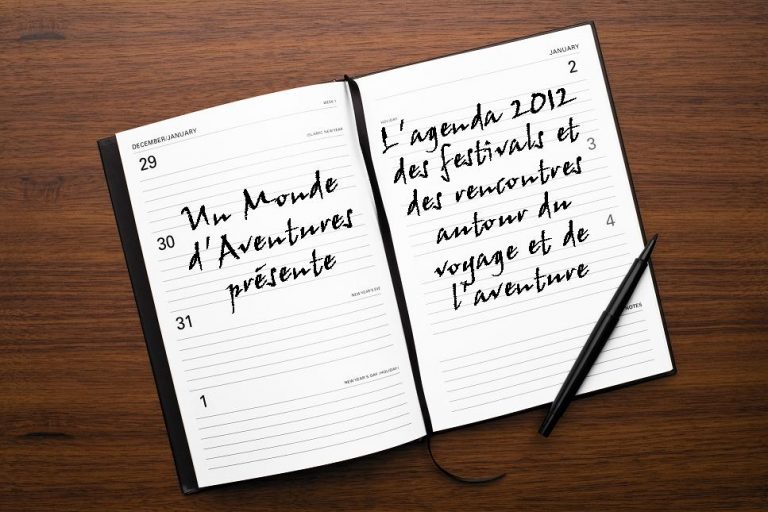 DECEMBER/JANUARY
WEEK 1
29
ISLAMIC NEW YEAR
Un Monde
30
d'Aventures
présente
NEW YEAR'S EVE
31
NEW YEAR'S DAY (HOLIDAY)
1
JANUARY
2
HOLIDAY
L'agenda 2012
des festivals et
3
des rencontres
autour du
4
voyage et de
l'aventure
NOTES